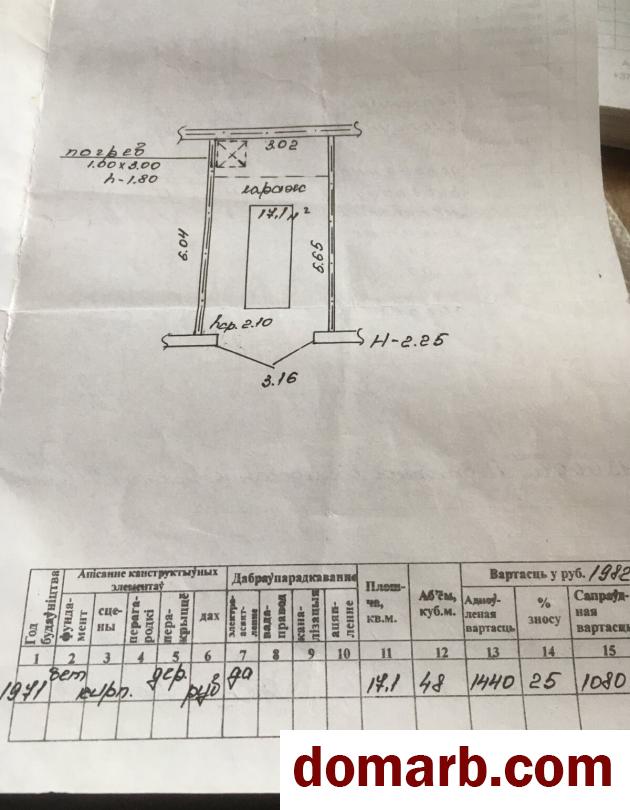 3.02
погреб
1.00 x 3.00
h-1.80
гараж
17,1 м²
6.04
5.65
hср. 2.10
H-2.25
3.16
Год будаўніцтва
Апісанне канструктыўных элементаў
фунда-мент
сце-ны
перага-родкі
пера-крыццё
дах
Дабраўпарадкаванне
электра-асвят-ленне
вада-правод
кана-лізацыя
ацяп-ленне
Плош-ча, кв.м.
Аб'ём, куб.м.
Вартасць у руб. 1982
Аднаў-леная вартасць
% зносу
Сапраўд-ная вартасць
1 2 3 4 5 6 7 8 9 10 11 12 13 14 15
1971 бет кирп. дер. руб да 17,1 48 1440 25 1080
domarb.com